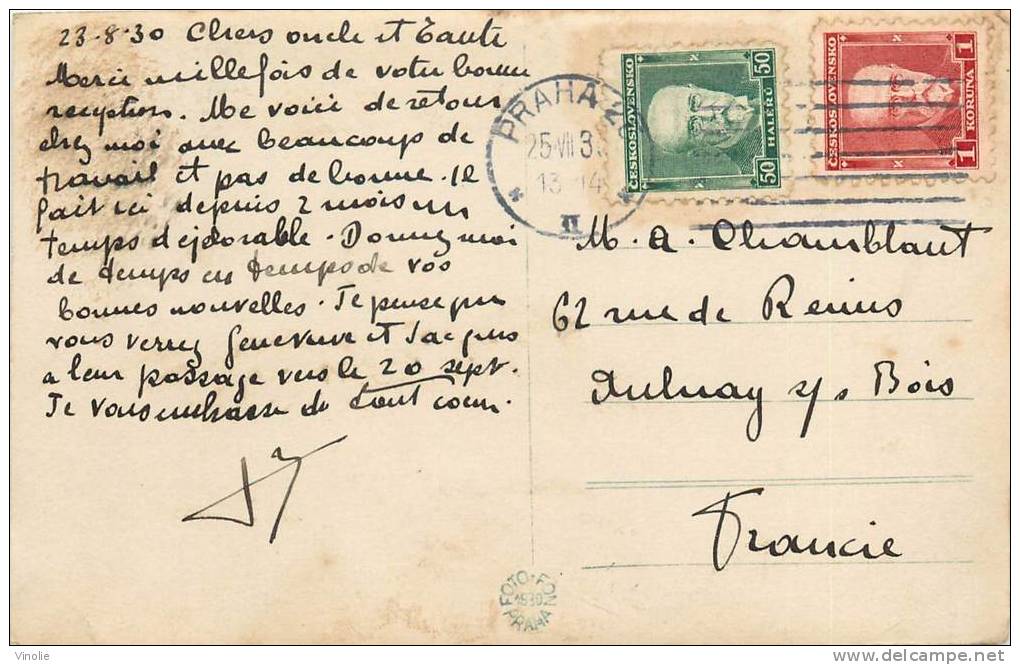 23-8-30 Chers oncle et Tante
Merci mille fois de votre bonne
reception. Me voici de retour
chez moi avec beaucoup de
travail et pas de bonne. Il
fait ici depuis 2 mois un
temps déplorable. Donnez moi
de temps en temps de vos
bonnes nouvelles. Je pense que
vous verrez Genevieve et Jacques
a leur passage vers le 20 sept.
Je vous embrasse de tout coeur.
PRAHA
25 VII 3
13-14
II
ČESKOSLOVENSKO
50 HALÉŘŮ 50
ČESKOSLOVENSKO
1 KORUNA 1
M. A. Chamblant
62 rue de Reims
Aulnay s/s Bois
Francie
FOTO-FON
1930
PRAHA
Vinolie
delcampe.net